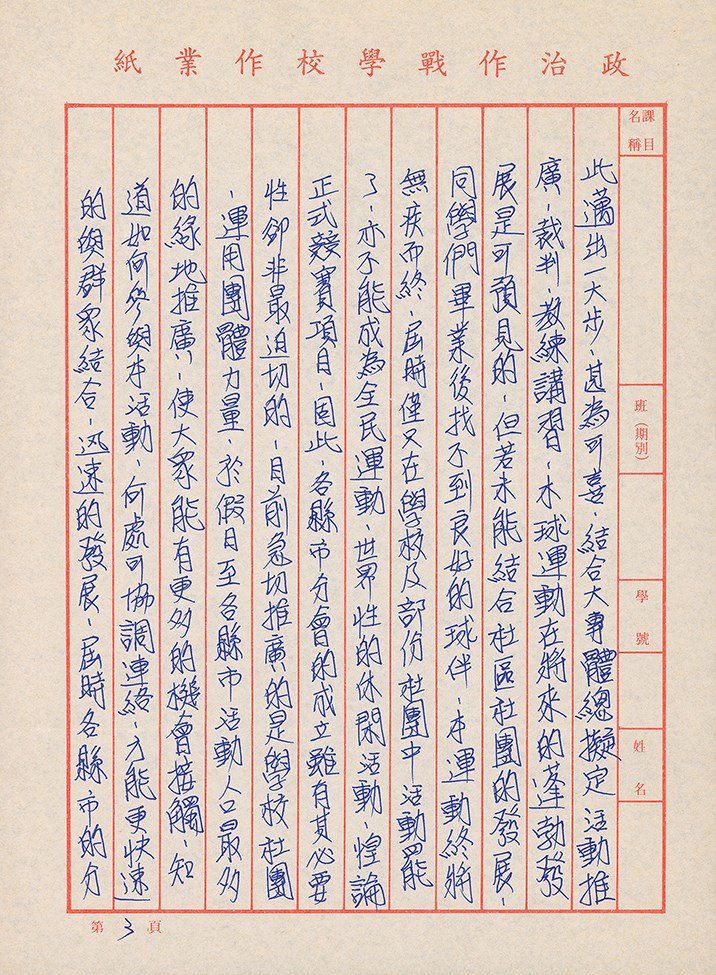 政治作戰學校作業紙
課目名稱
班(期別)
學號
姓名
此邁出一大步,甚為可喜,結合大專體總擬定活動推
廣,裁判,教練講習,木球運動在將來的蓬勃發
展是可預見的,但若未能結合社區社團的發展,
同學們畢業後找不到良好的球伴,本運動終將
無疾而終,屆時僅又在學校及部份社團中活動罷
了,亦不能成為全民運動、世界性的休閑活動,惶論
正式競賽項目,因此,各縣市分會的成立雖有其必要
性卻非最迫切的,目前急切推廣的是學校社團
,運用團體力量,於假日至各縣市活動人口最多
的綠地推廣,使大眾能有更多的機會接觸,知
道如何參與本活動,何處可協調連絡,才能更快速
的與群眾結合,迅速的發展,屆時各縣市的分
第3頁